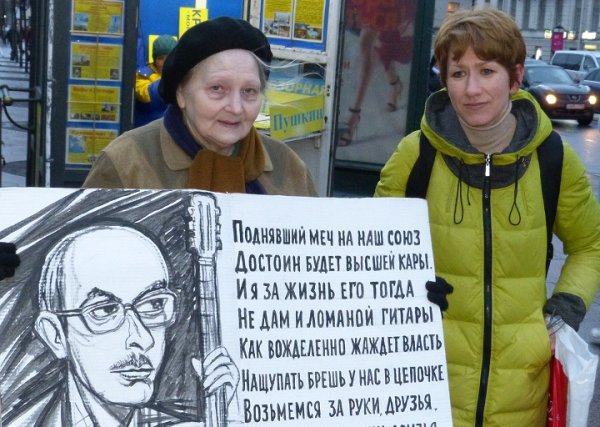 Пушкин
Поднявший меч на наш союз
Достоин будет высшей кары.
И я за жизнь его тогда
Не дам и ломаной гитары
Как вожделенно жаждет власть
Нащупать брешь у нас в цепочке
Возьмемся за руки, друзья,